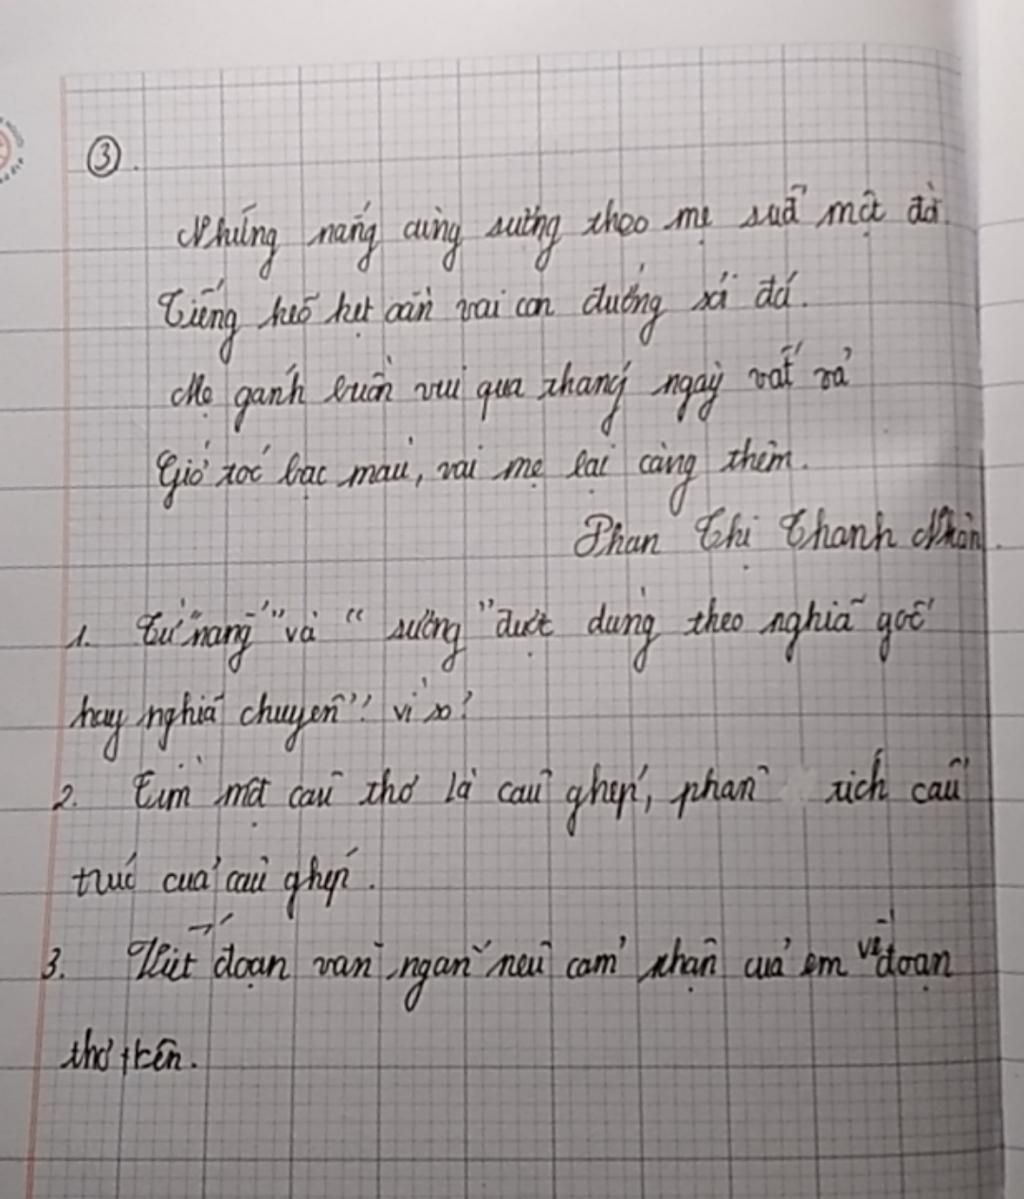 ③.
Những nắng cùng sương theo mẹ suốt một đời
Tiếng kẽo kẹt oằn vai con đường sỏi đá.
Mẹ gánh buồn vui qua tháng ngày vất vả
Gió xóc bạc màu, vai mẹ lại càng thêm.
Phan Thị Thanh Nhàn.
1. Từ "nắng" và "sương" được dùng theo nghĩa gốc
hay nghĩa chuyển? vì sao?
2. Tìm một câu thơ là câu ghép, phân tích cấu
trúc của câu ghép.
3. Viết đoạn văn ngắn nêu cảm nhận của em về đoạn
thơ trên.